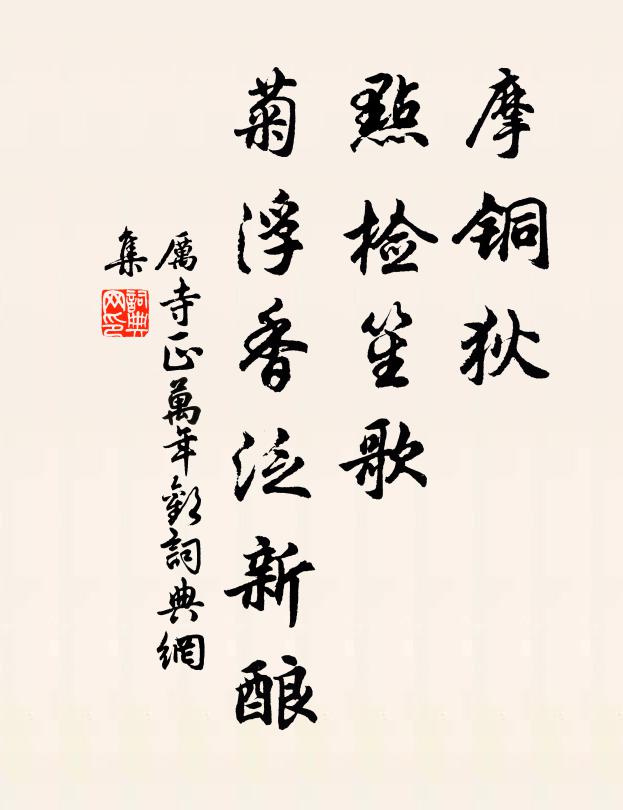 摩铜狄
點检笙歌
菊浮香泛新酿
厲寺正萬年歡詞典網
集
詞典网印